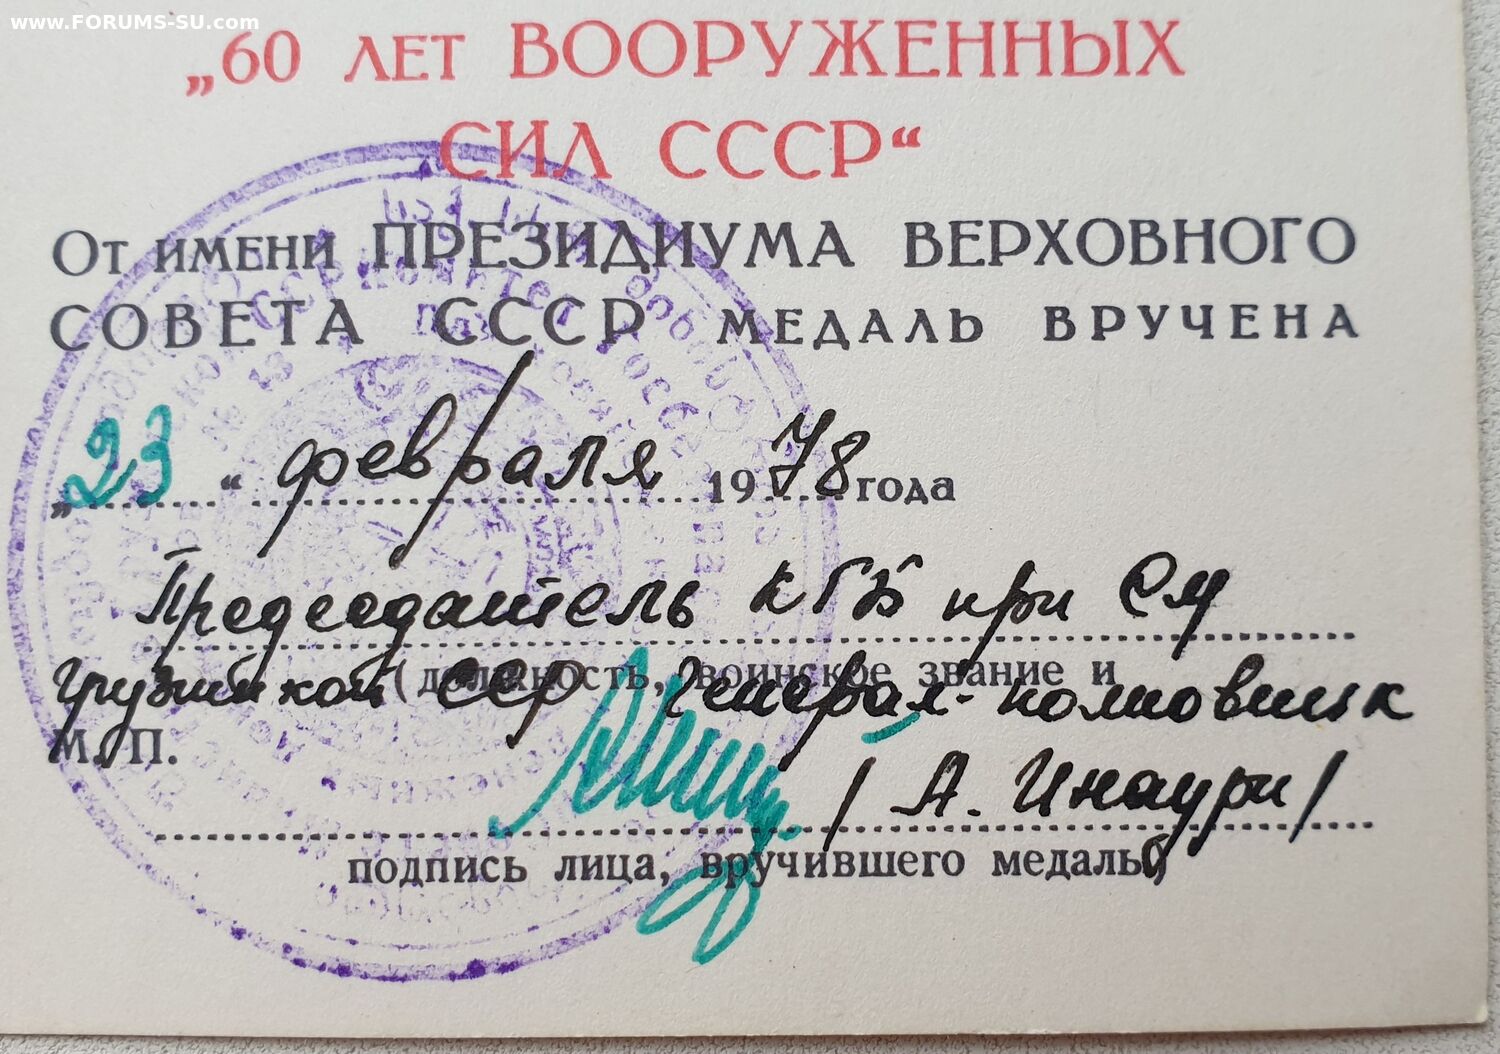 www.FORUMS-SU.com
„60 ЛЕТ ВООРУЖЕННЫХ
СИЛ СССР“
От имени ПРЕЗИДИУМА ВЕРХОВНОГО
СОВЕТА СССР МЕДАЛЬ ВРУЧЕНА
„23“ февраля 1978 года
Председатель КГБ при СМ
(должность, воинское звание и
Грузинской ССР генерал-полковник
М. П.
/А. Инаури/
подпись лица, вручившего медаль)